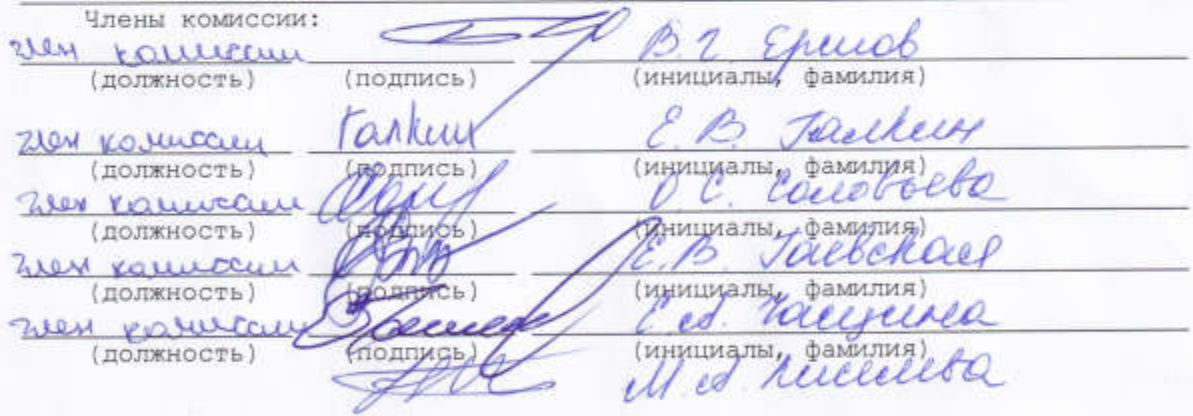 Члены комиссии:
член комиссии В.Г. Ершов
(должность) (подпись) (инициалы, фамилия)
член комиссии Галкин Е.В. Галкин
(должность) (подпись) (инициалы, фамилия)
член комиссии О.С. Соловьева
(должность) (подпись) (инициалы, фамилия)
член комиссии Е.В. Гаевская
(должность) (подпись) (инициалы, фамилия)
член комиссии Е.А.
(должность) (подпись) (инициалы, фамилия)
М.А.